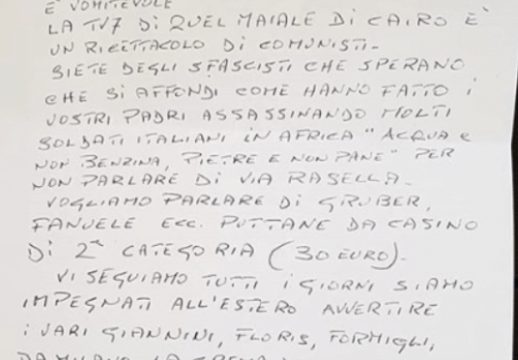 È VOMITEVOLE
LA TV7 DI QUEL MAIALE DI CAIRO È
UN RICETTACOLO DI COMUNISTI.
SIETE DEGLI SFASCISTI CHE SPERANO
CHE SI AFFONDI COME HANNO FATTO I
VOSTRI PADRI ASSASSINANDO MOLTI
SOLDATI ITALIANI IN AFRICA "ACQUA E
NON BENZINA, PIETRE E NON PANE" PER
NON PARLARE DI VIA RASELLA.
VOGLIAMO PARLARE DI GRUBER,
FANUELE ECC. PUTTANE DA CASINO
DI 2ª CATEGORIA (30 EURO).
VI SEGUIAMO TUTTI I GIORNI SIAMO
IMPEGNATI ALL'ESTERO AVVERTIRE
I VARI GIANNINI, FLORIS, FORMIGLI,
DA MILANO LA